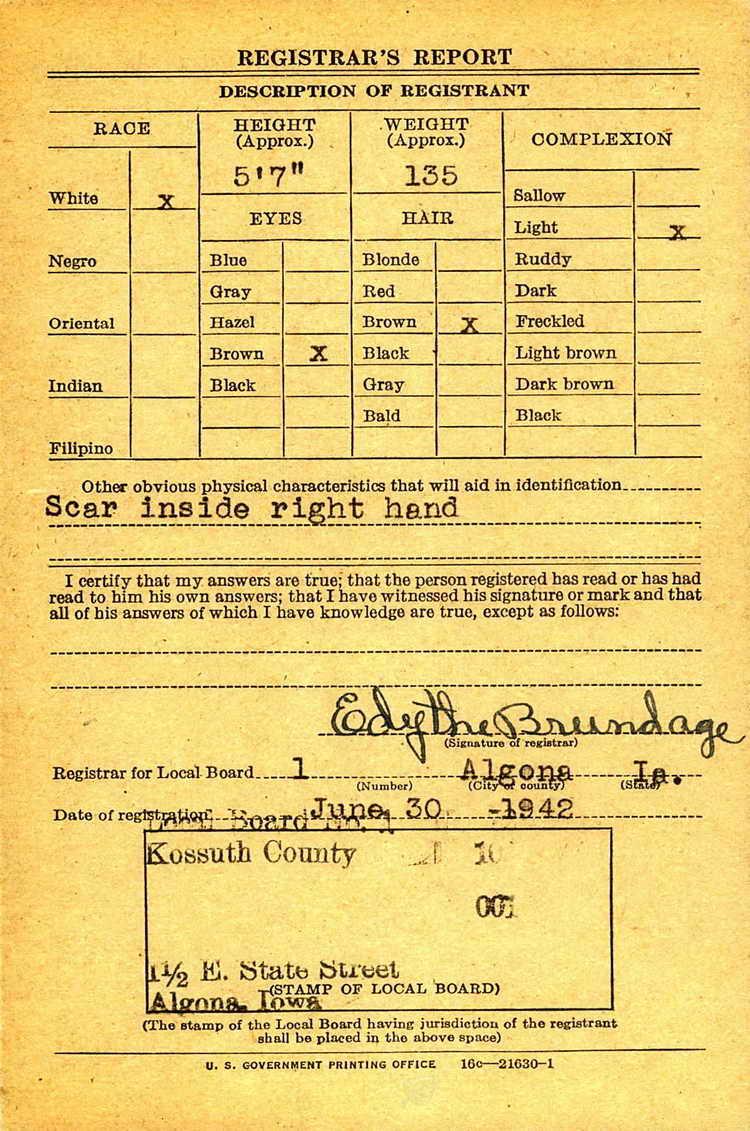 REGISTRAR'S REPORT
DESCRIPTION OF REGISTRANT
RACE
HEIGHT
(Approx.)
WEIGHT
(Approx.)
COMPLEXION
5'7"
135
White X
EYES
HAIR
Sallow
Light X
Negro
Blue
Blonde
Ruddy
Gray
Red
Dark
Oriental
Hazel
Brown X
Freckled
Brown X
Black
Light brown
Indian
Black
Gray
Dark brown
Bald
Black
Filipino
Other obvious physical characteristics that will aid in identification
Scar inside right hand
I certify that my answers are true; that the person registered has read or has had
read to him his own answers; that I have witnessed his signature or mark and that
all of his answers of which I have knowledge are true, except as follows:
Edythe Brundage
(Signature of registrar)
Registrar for Local Board 1 Algona Ia.
(Number) (City or county) (State)
Date of registration June 30 -1942
Local Board No. 1
Kossuth County
001
1½ E. State Street
(STAMP OF LOCAL BOARD)
Algona, Iowa
(The stamp of the Local Board having jurisdiction of the registrant
shall be placed in the above space)
U. S. GOVERNMENT PRINTING OFFICE 16c—21630-1